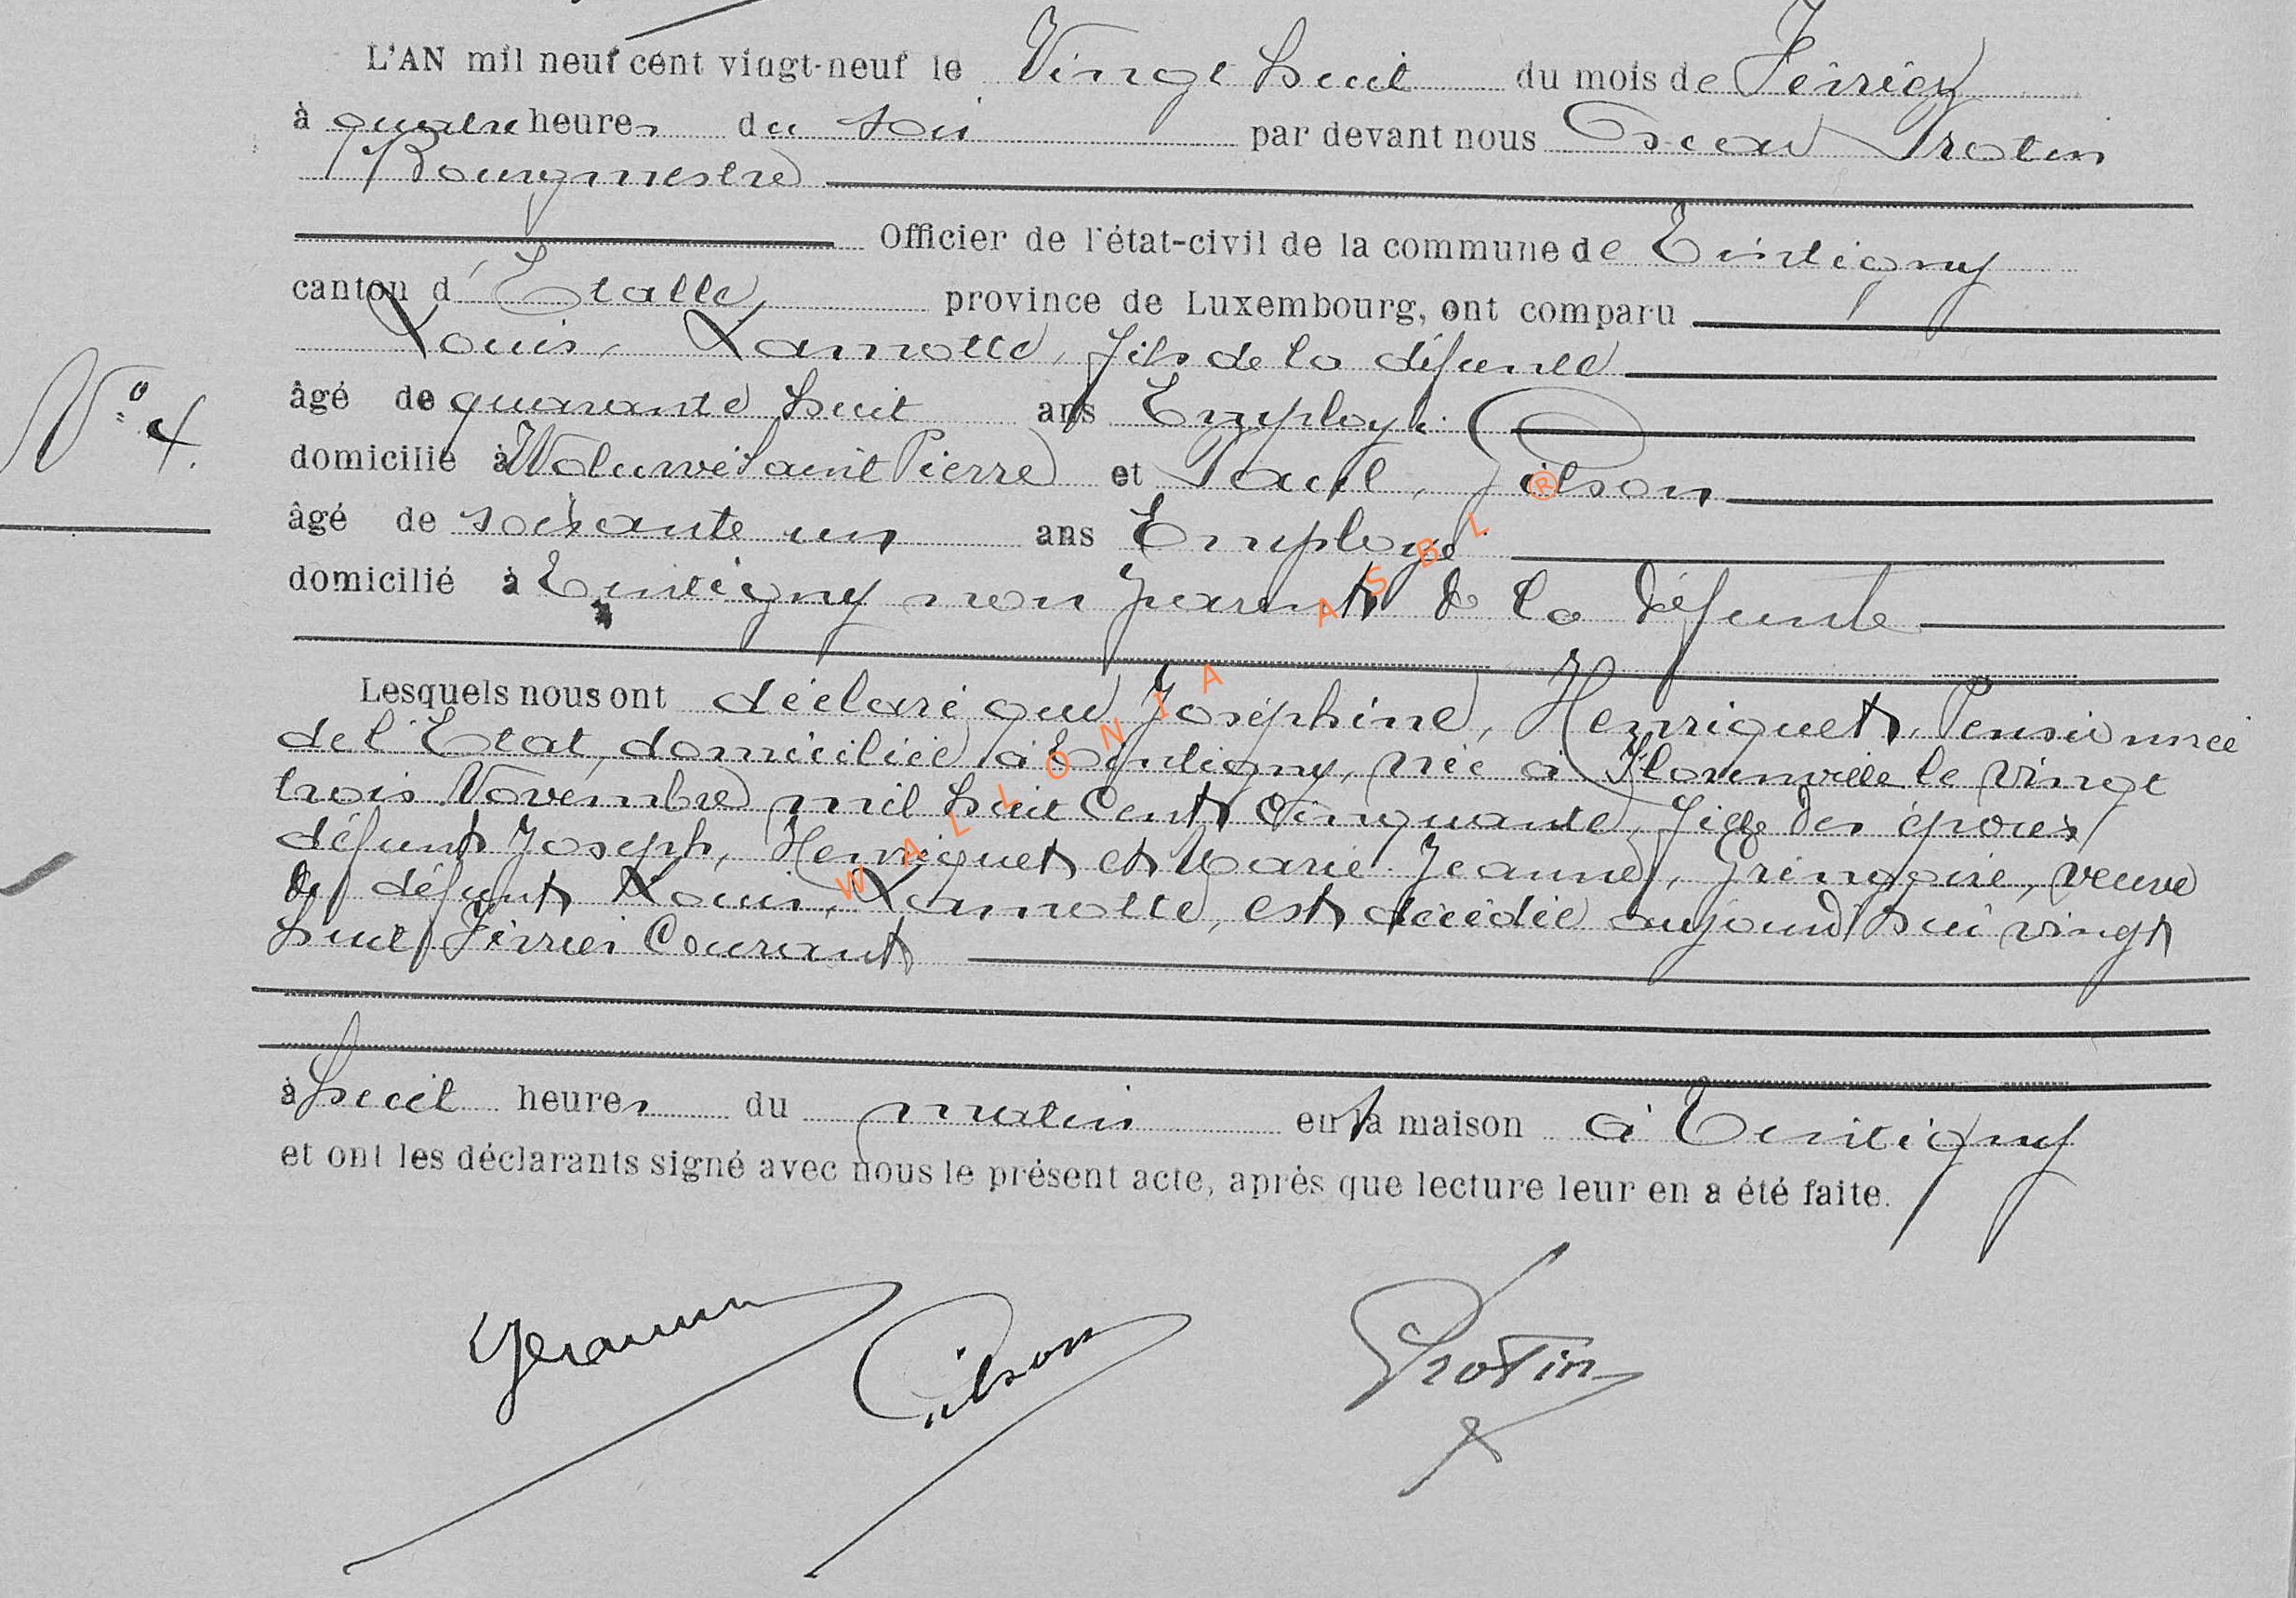 L'AN mil neuf cent vingt-neuf le Vingt huit du mois de Février
à quatre heures du soir par devant nous Oscar Protin
Bourgmestre
Officier de l'état-civil de la commune de Tintigny
canton d'Etalle, province de Luxembourg, ont comparu
Louis, Lamotte, fils de la défunte
N° 4.
âgé de quarante huit ans Employé
domicilié à Woluwé Saint Pierre et Paul, Gilson
âgé de soixante un ans Employé
domicilié à Tintigny non parent de la défunte
Lesquels nous ont déclaré que Joséphine, Henriquet, Pensionnée
de l'Etat, domiciliée à Tintigny, née à Florenville le vingt
trois Novembre mil huit Cent Cinquante, fille des époux
défunt Joseph, Henriquet et Marie Jeanne, Gringoire, veuve
de défunt Louis, Lamotte, est décédée aujourd'hui vingt
huit Février Courant
à huit heures du matin en sa maison à Tintigny
et ont les déclarants signé avec nous le présent acte, après que lecture leur en a été faite.
Gilson Protin
WALLONIA ASBL ®